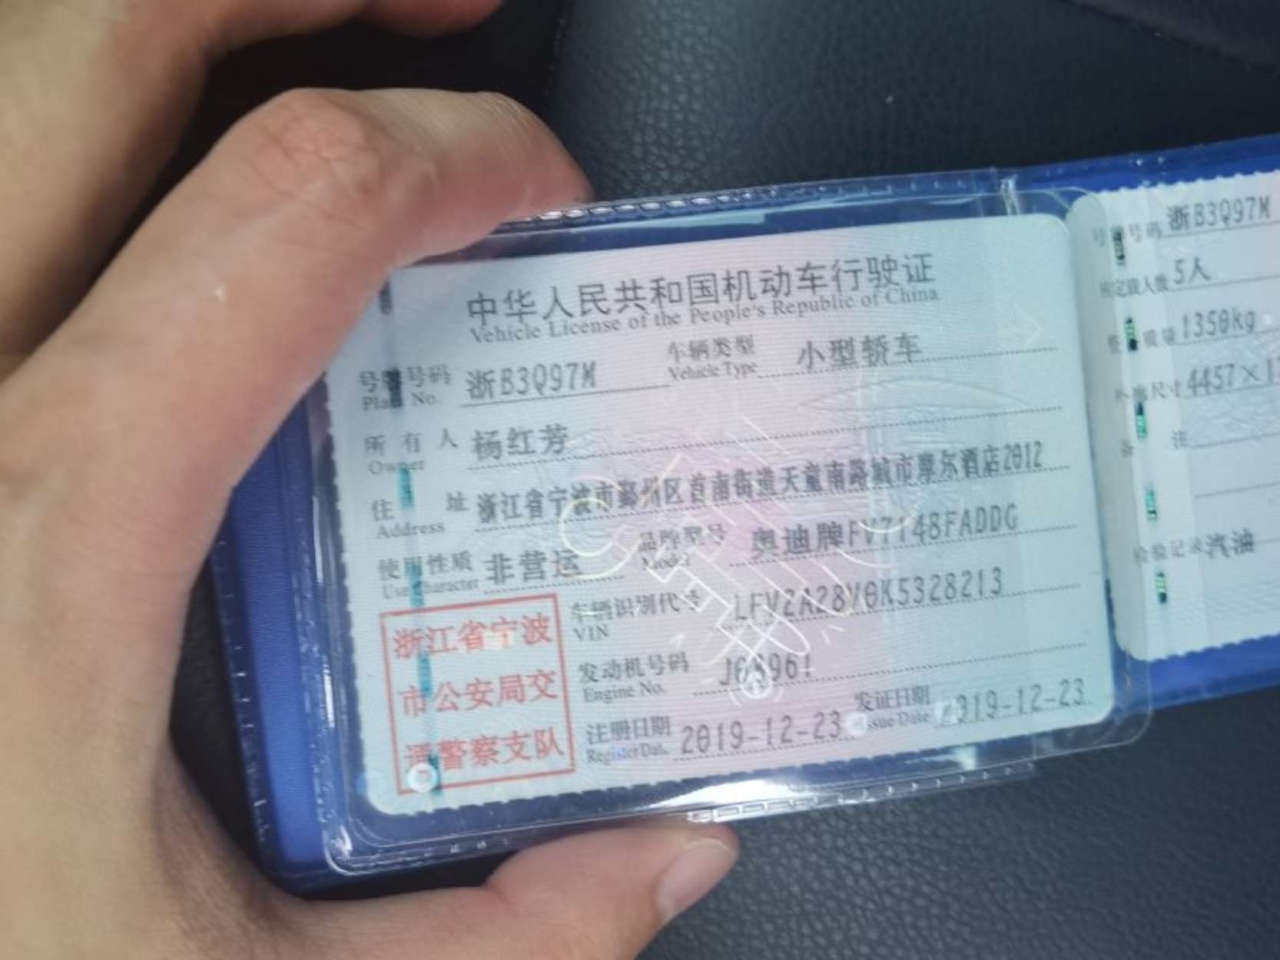 中华人民共和国机动车行驶证
Vehicle License of the People's Republic of China
号牌号码 浙B3Q97M 车辆类型 小型轿车
Plate No. Vehicle Type
所有人 杨红芳
Owner
住址 浙江省宁波市鄞州区首南街道天童南路城市摩尔酒店2012
Address
使用性质 非营运 品牌型号 奥迪牌FV7148FADDG
Use Character Model
车辆识别代号 LFV2A28V0K5328213
VIN
发动机号码
Engine No.
注册日期 2019-12-23 发证日期 2019-12-23
Register Date Issue Date
浙江省宁波
市公安局交
通警察支队
号牌号码 浙B3Q97M
核定载人数 5人
整备质量 1350kg
外廓尺寸 4457×1
备注
检验记录 汽油